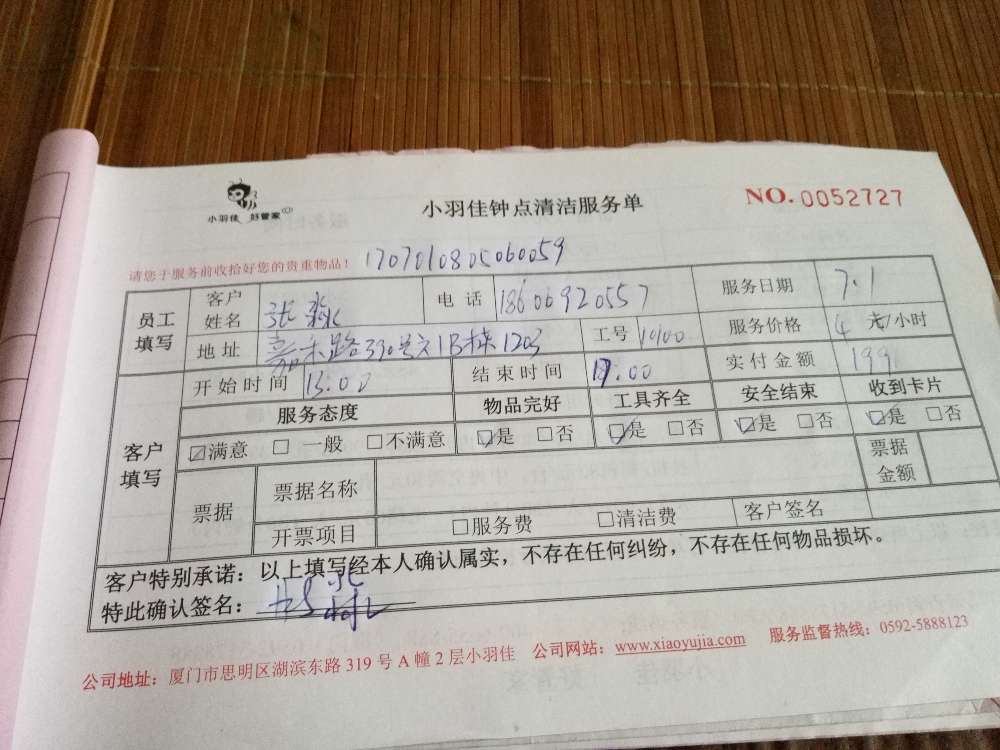 小羽佳 好管家
小羽佳钟点清洁服务单
NO. 0052727
请您于服务前收拾好您的贵重物品！ 1707010805060059
员工填写 客户姓名 张淼 电话 18606920557 服务日期 7.1
地址 嘉禾路390号之1B栋1203 工号 服务价格 4 元/小时
客户填写 开始时间 13:00 结束时间 17:00 实付金额 199
服务态度 物品完好 工具齐全 安全结束 收到卡片
☑满意 □ 一般 □不满意 ☑是 □否 ☑是 □否 ☑是 □否 ☑是 □否
票据 票据名称 票据金额
开票项目 □服务费 □清洁费 客户签名
客户特别承诺：以上填写经本人确认属实，不存在任何纠纷，不存在任何物品损坏。
特此确认签名：
公司地址：厦门市思明区湖滨东路 319 号 A 幢 2 层小羽佳 公司网站：www.xiaoyujia.com 服务监督热线：0592-5888123